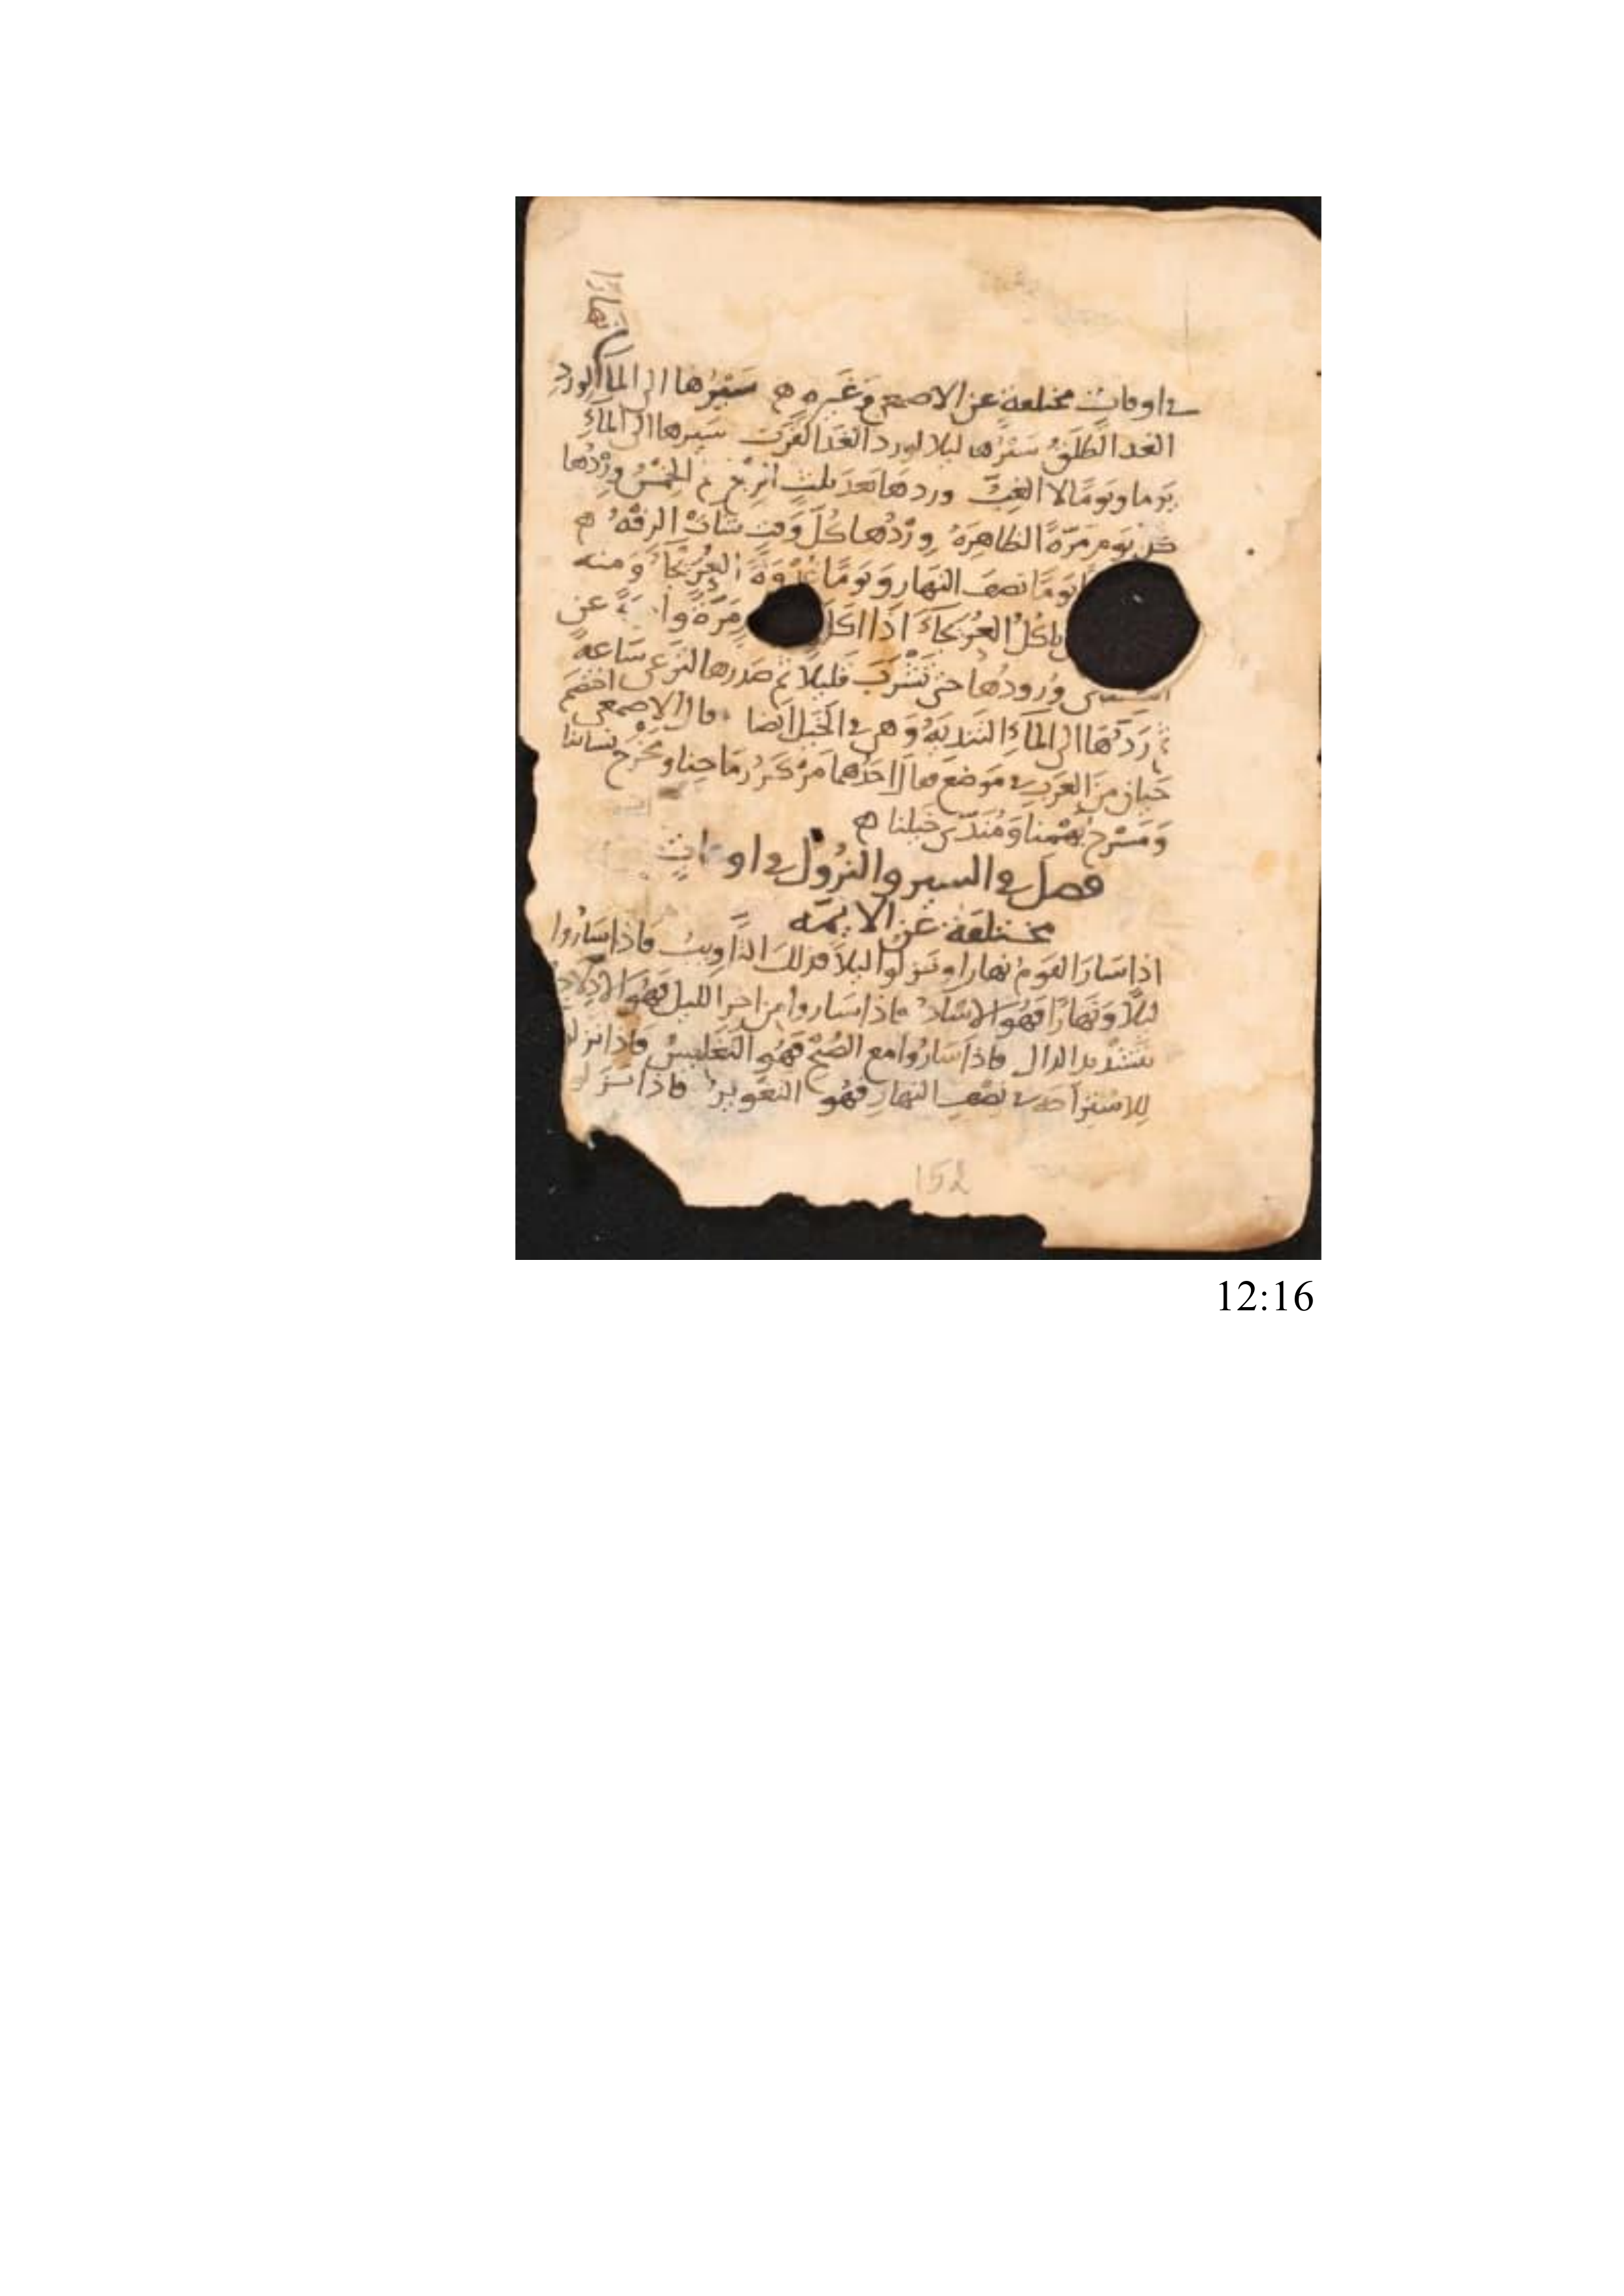 في اوقات مختلفة عن الاصمعي وغيره سيرها الى الماء لورد
الغد الطلق سيرها ليلا لورد الغد القرب سيرها الى الماء
يوما ويوما لا الغب وردها بعد ثلث الربع ثم الخمس وردها
كل يوم مرة الظاهرة وردها كل وقت شاءت الرفه
يوما نصف النهار ويوما غدوة العريجاء ومنه
ياكل العريجاء اذا اكل مرة عن
ورودها حتى تشرب قليلا ثم صدرها لترعى ساعة
ثم ردها الى الماء التندية وهي في الخيل ايضا قال الاصمعي اختصم
حيان من العرب في موضع فقال احدهما مركز رماحنا ومخرج نسائنا
ومسرح بهمنا ومندى خيلنا
فصل في السير والنزول في اوقات
مختلفة عن الايمة
اذا سار القوم نهارا ونزلوا ليلا فذلك التاويب فاذا ساروا
ليلا ونهارا فهو الاساد فاذا ساروا من اخر الليل فهو الادلاج
بتشديد الدال فاذا ساروا مع الصبح فهو التغليس فاذا نزلوا
للاستراحة في نصف النهار فهو التغوير فاذا نزلوا
152
12:16